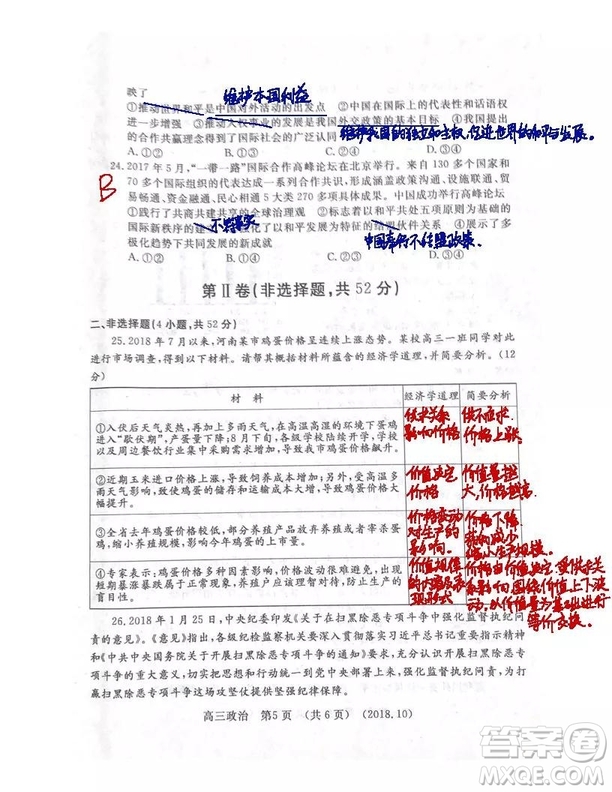 映了
维护本国利益
①推动世界和平是中国对外活动的出发点 ②中国在国际上的代表性和话语权
进一步增强 ③推动人权事业的发展是我国外交政策的基本目标 ④我国提出
的合作共赢理念得到了国际社会的广泛认同
维护我国的独立和主权,促进世界的和平与发展。
24.2017年5月,“一带一路”国际合作高峰论坛在北京举行。来自130多个国家和
B
70多个国际组织的代表达成一系列合作共识,形成涵盖政策沟通、设施联通、贸
易畅通、资金融通、民心相通5大类270多项具体成果。中国成功举行高峰论坛
①践行了共商共建共享的全球治理观 ②标志着以和平共处五项原则为基础的
国际新秩序的
以和平与发展为特征的
软件关系 ④展示了多
极化趋势下共同发展的新成就
中国奉行不结盟政策。
A.①② B.①④ C.②③ D.③④
第Ⅱ卷(非选择题,共52分)
二、非选择题(4小题,共52分)
25.2018年7月以来,河南某市鸡蛋价格呈连续上涨态势。某校高三一班同学对此
进行市场调查,得到以下材料。请帮其概括材料所蕴含的经济学道理,并简要分析。(12
分)
材 料 经济学道理 简要分析
①入伏后天气炎热,再加上多雨天气,在高温高湿的环境下蛋鸡
进入“歇伏期”,产蛋量下降。8月中下旬,各级学校陆续开学,学校
以及周边餐饮行业集中采购需求增加,导致我市鸡蛋价格上涨。
供求关系
影响价格
供不应求,
价格上涨
②近期玉米进口价格上涨,导致饲养成本增加;另外,受高温多
雨天气影响,鸡蛋的储存和运输成本大大增加,导致鸡蛋价格大幅
提升。
价值决定
价格
价值量越
大,价格越高
③全省去年鸡蛋价格较低,部分养殖产品放弃养殖或者宰杀蛋
鸡,缩小养殖规模,影响了今年鸡蛋的上市量。
价格变动
对生产的
影响。
价格下降
缩小生产规模。
④专家表示:鸡蛋价格受多种因素影响,价格波动很难避免,出现
短期暴涨暴跌属于正常现象,养殖户应该理智对待,防止生产的
盲目性。
价值规律
的内容及表
现形式
价值决定,受供求关
系影响,围绕价值上下波
动,以价值量为基础进行
等价交换。
26.2018年1月25日,中央纪委印发《关于在扫黑除恶专项斗争中强化监督执纪问
责的意见》。《意见》指出,各级纪检监察机关要深入贯彻落实习近平总书记重要指示精神
和《中共中央国务院关于开展扫黑除恶专项斗争的通知》要求,充分认识开展扫黑除恶专项斗争
的重大意义,切实把思想和行动统一到党中央部署上来,强化监督执纪问责,为打
赢扫黑除恶专项斗争这场攻坚仗提供坚强纪律保障。
高三政治 第5页 (共6页) (2018.10)
答案圈
MXQE.COM